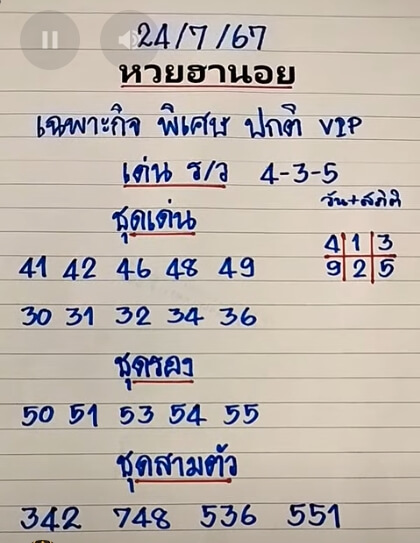 24/7/67
หวยฮานอย
เฉพาะกิจ พิเศษ ปกติ VIP
เด่น ร/ว 4-3-5
วัน+สถิติ
ชุดเด่น
4 1 3
9 2 5
41 42 46 48 49
30 31 32 34 36
ชุดรอง
50 51 53 54 55
ชุดสามตัว
342 748 536 551